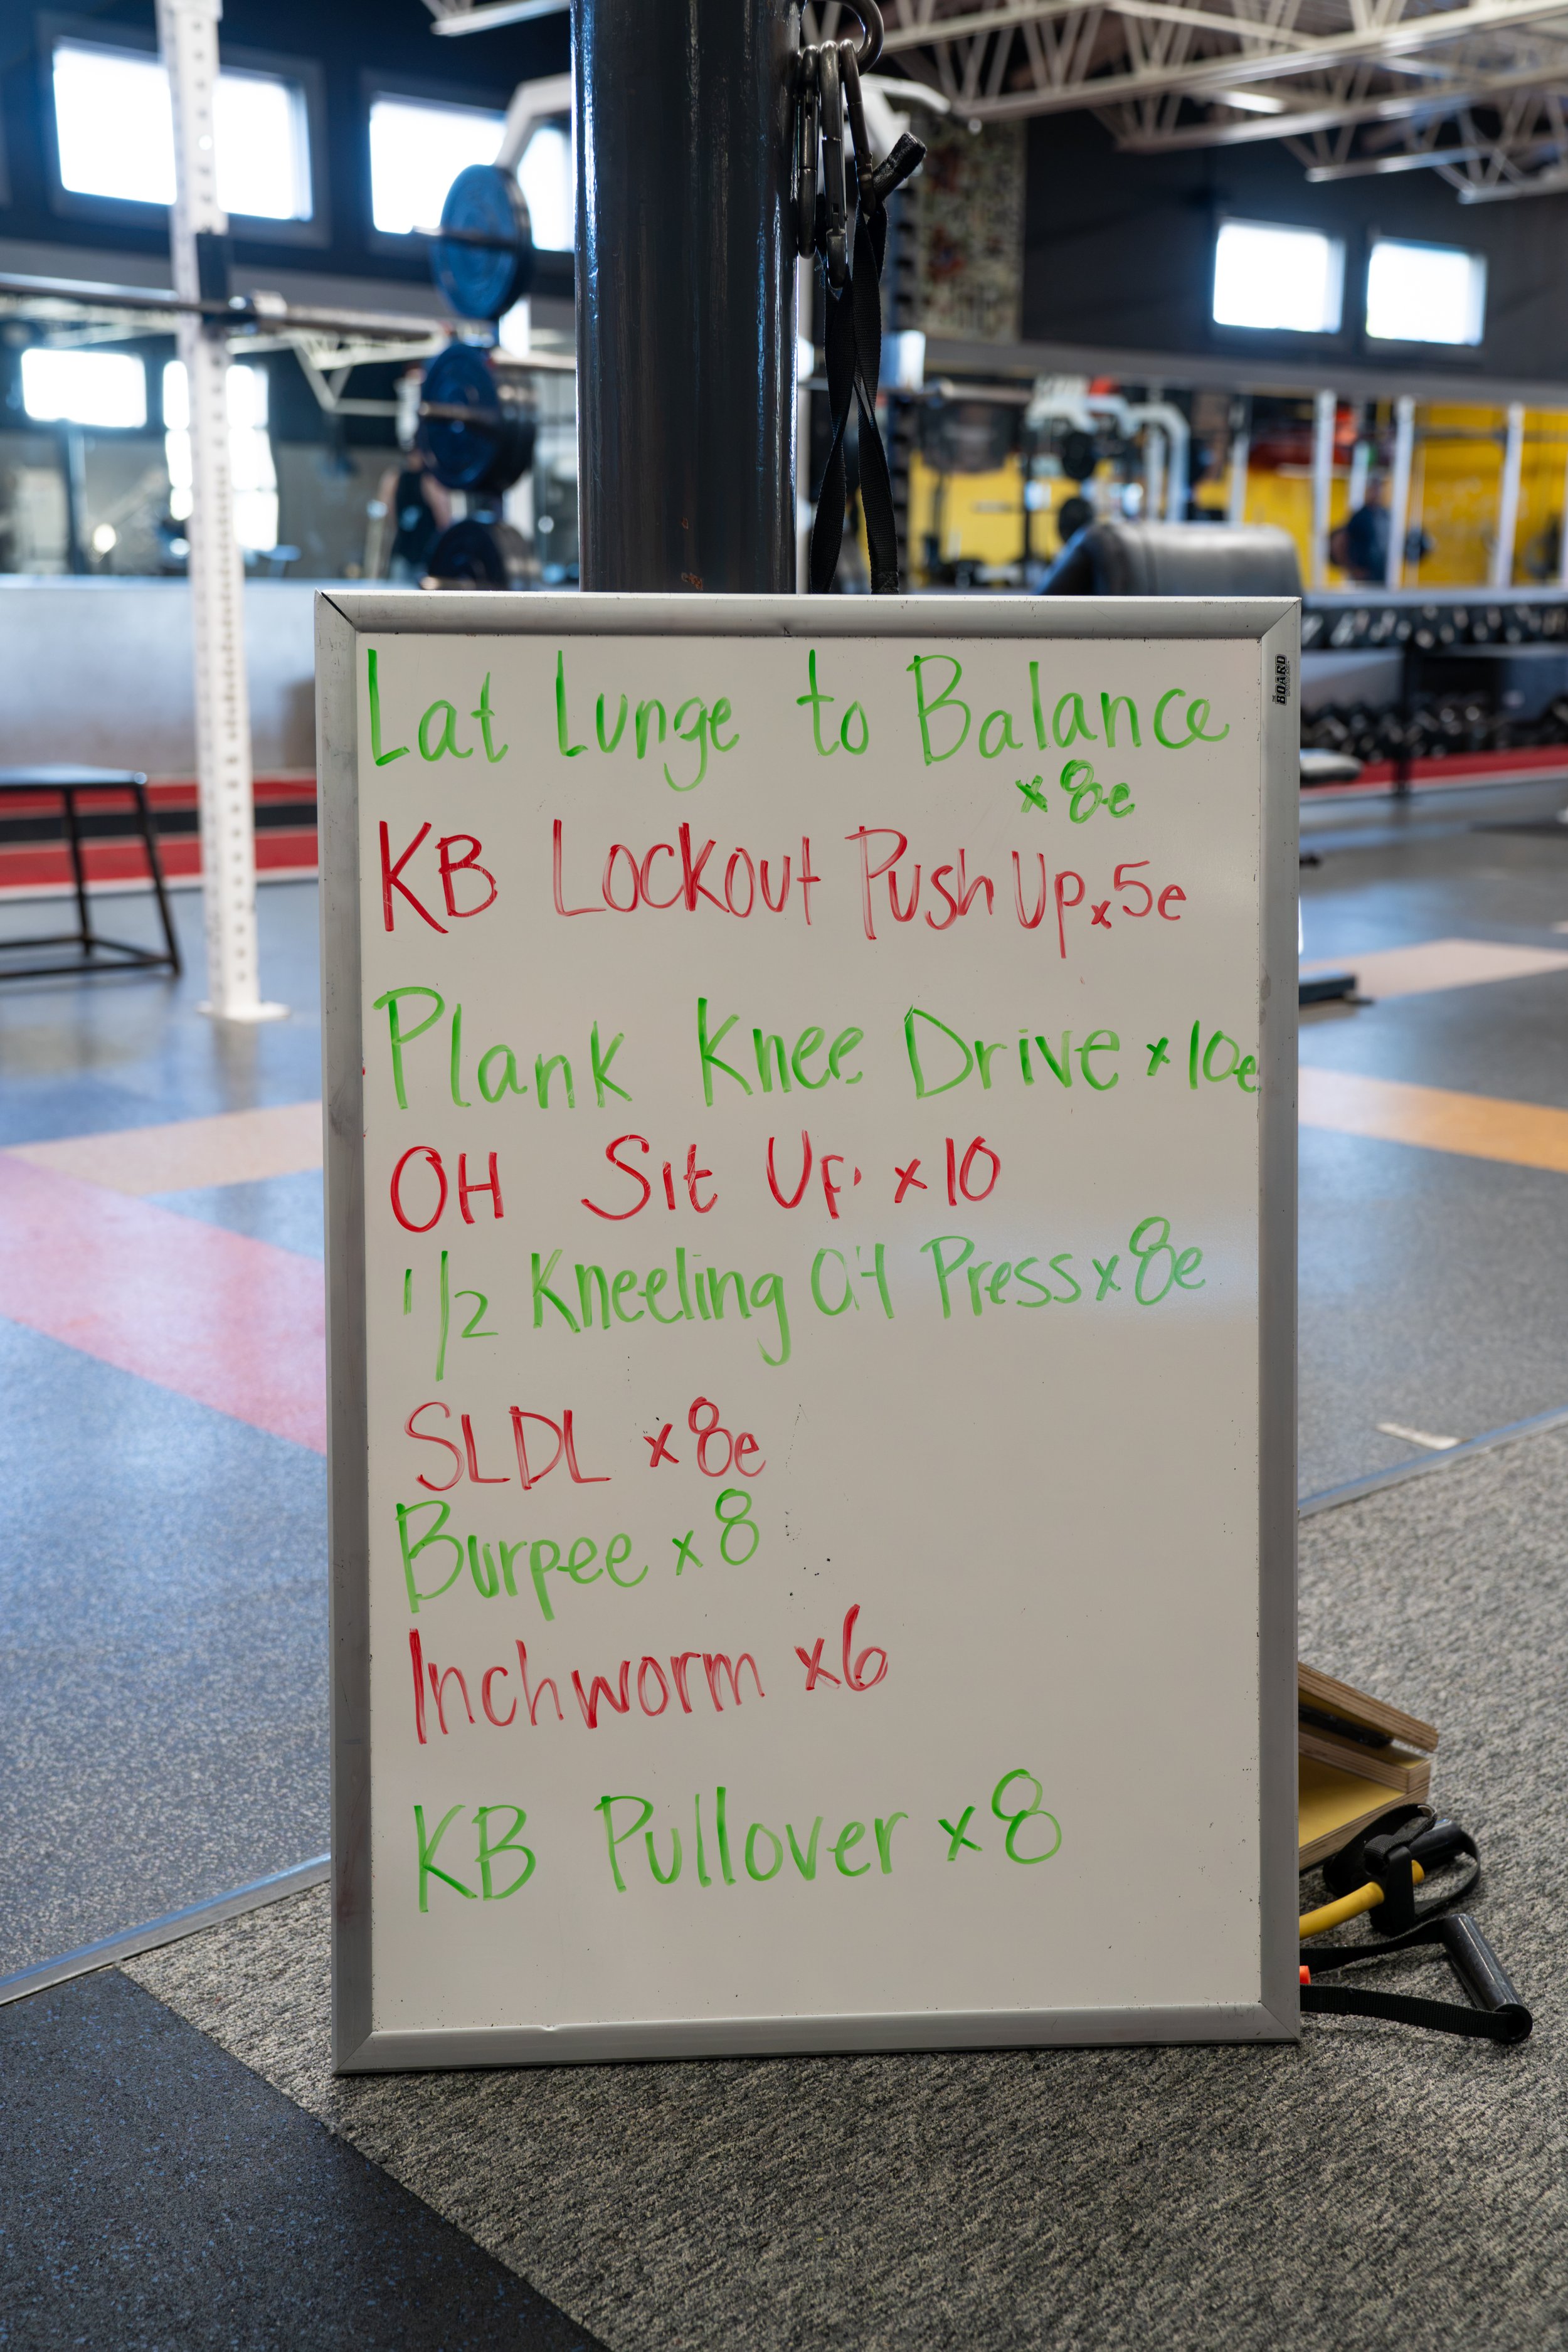 Lat Lunge to Balance
x 8e
KB Lockout Push Up x 5e
Plank Knee Drive x 10e
OH Sit Up x 10
1/2 Kneeling OH Press x 8e
SLDL x 8e
Burpee x 8
Inchworm x 6
KB Pullover x 8
BOARD